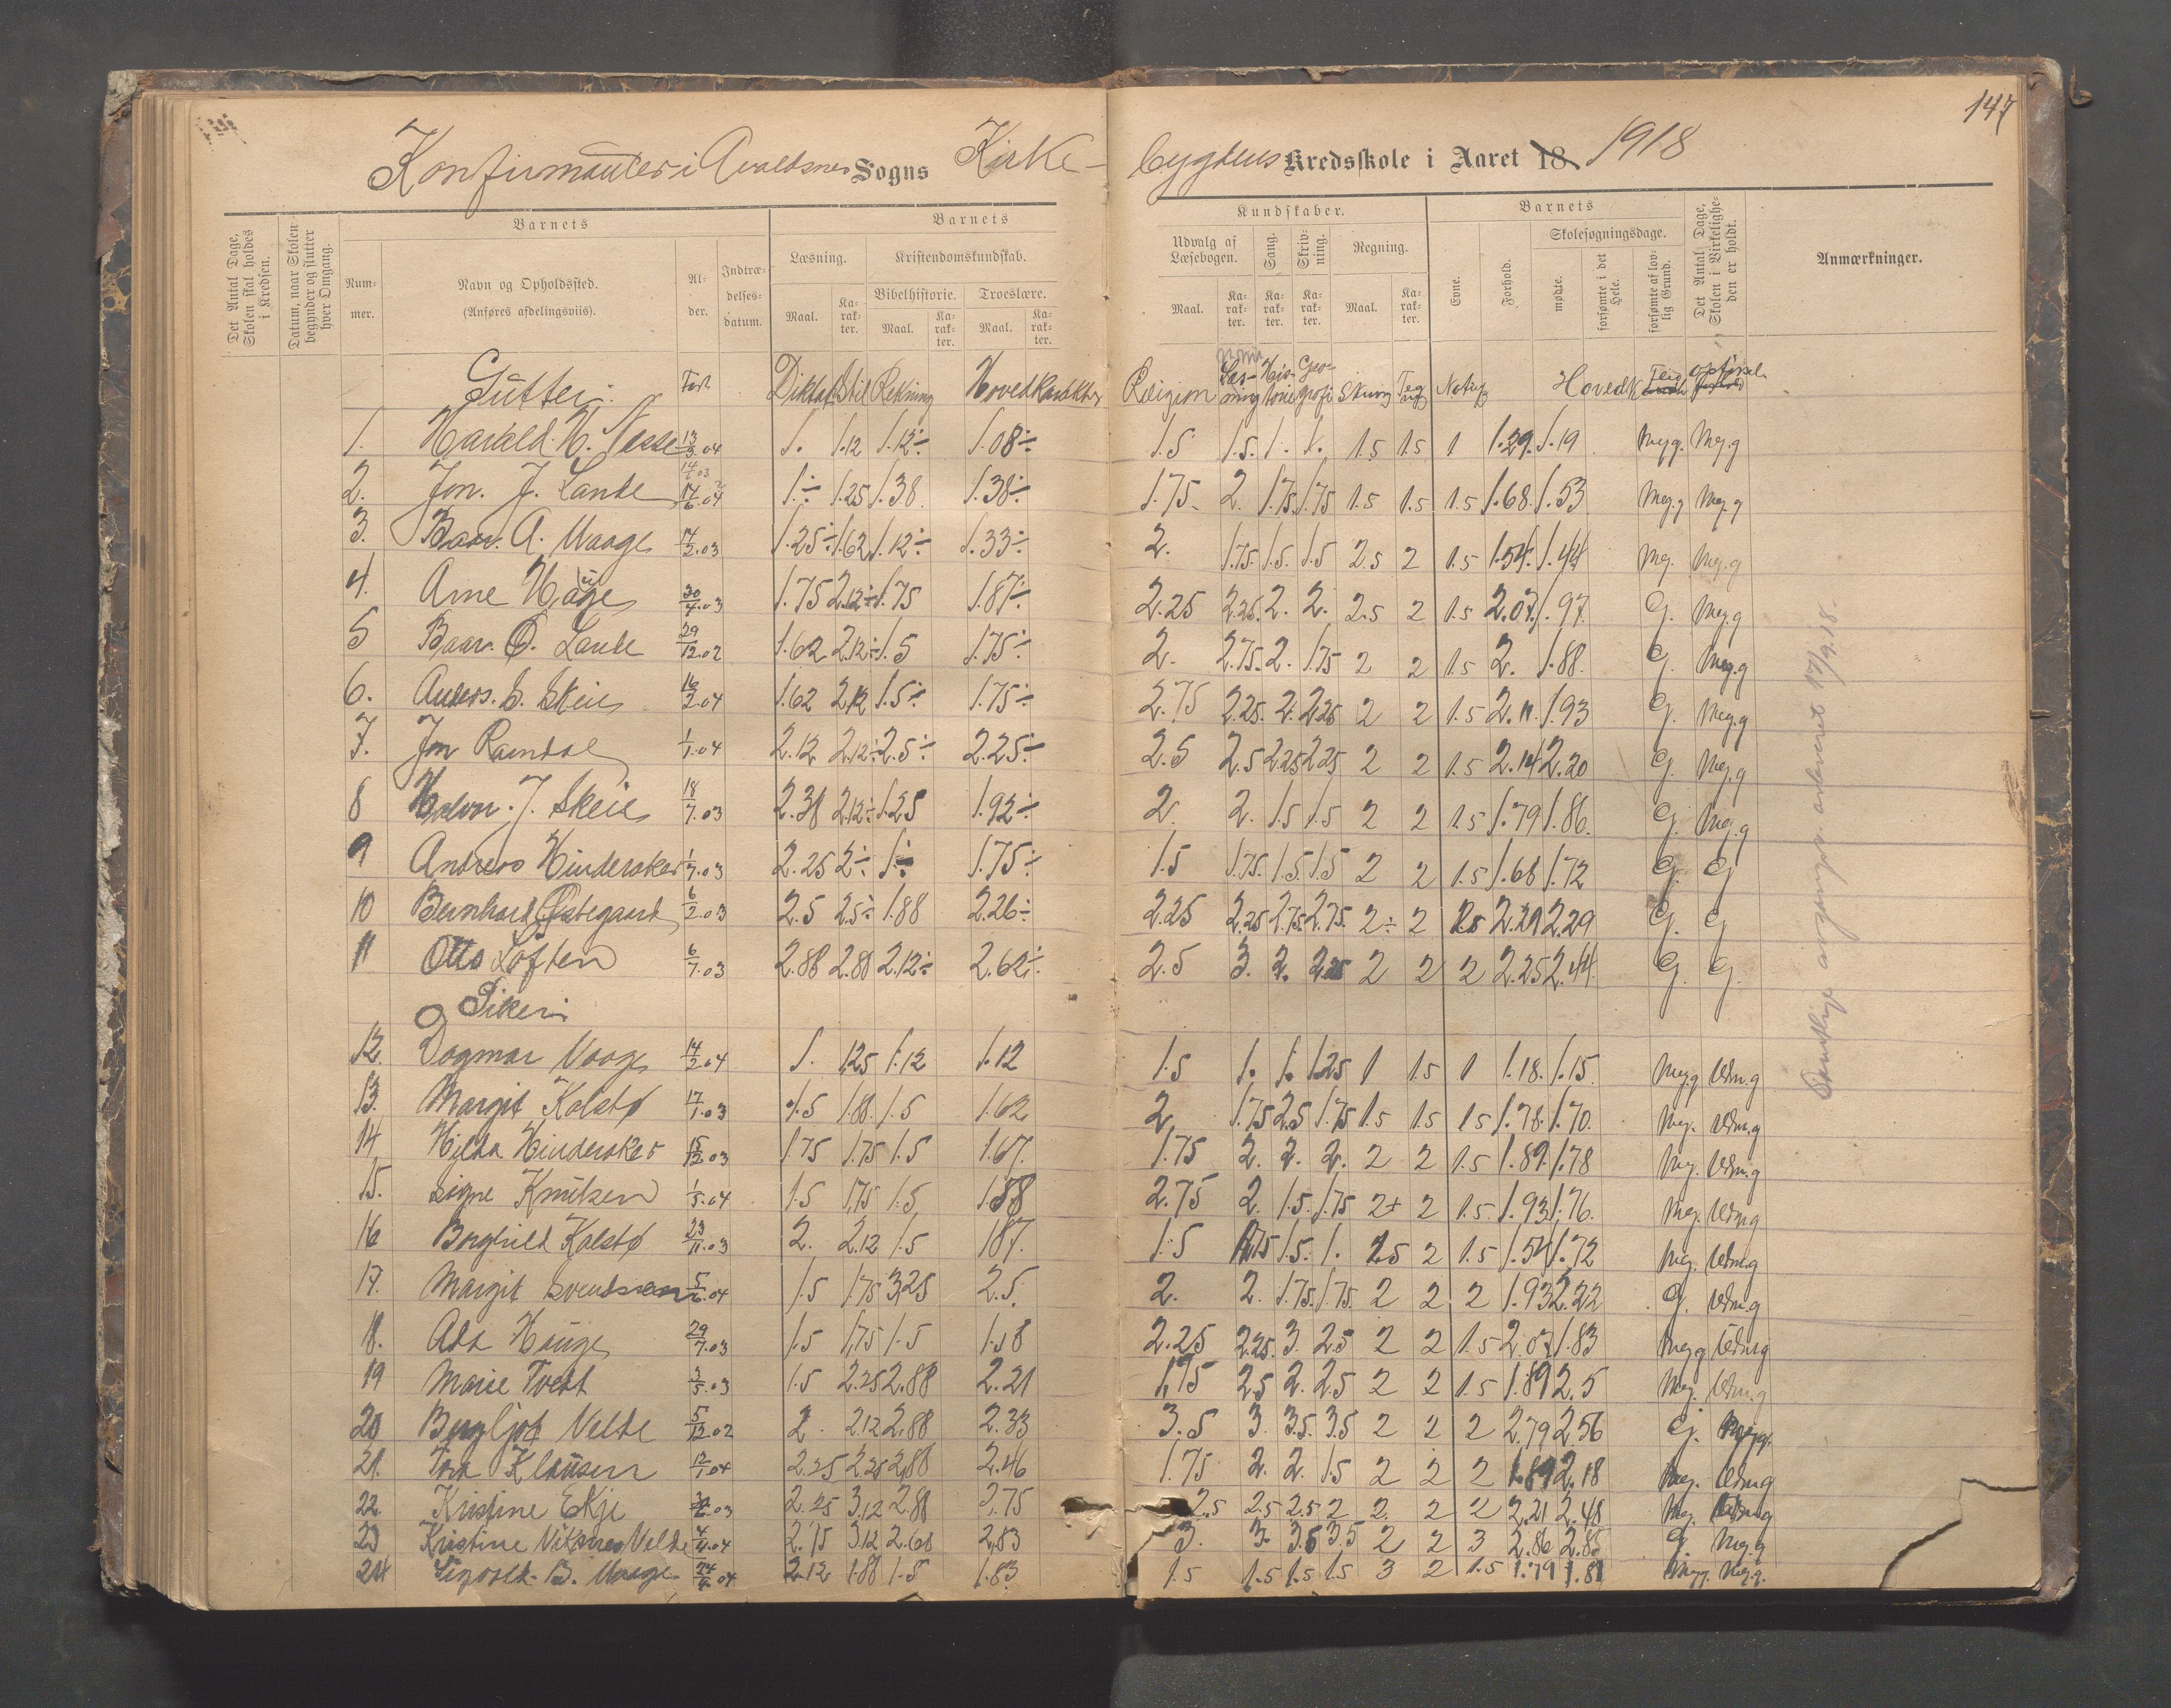 147
Konfirmanter i Avaldsnes Sogns Kirke-
bygdens Kredsskole i Aaret 18 1918
Det Antal Dage, Skolen skal holdes i Kredsen.
Datum, naar Skolen begynder og slutter hver Omgang.
Barnets
Nummer.
Navn og Opholdssted. (Anføres afdelingsviis).
Alder.
Indtrædelsesdatum.
Barnets
Læsning. Kristendomskundskab.
Bibelhistorie. Troeslære.
Maal. Karakter. Maal. Karakter. Maal. Karakter.
Kundskaber.
Udvalg af Læsebogen. Sang. Skrivning. Regning.
Maal. Karakter. Karakter. Karakter. Maal. Karakter.
Barnets
Evne. Forhold. Skolesøgningsdage.
mødte. forsømte i det Hele. forsømte af lovlig Grund.
Det Antal Dage, Skolen i Virkeligheden er holdt.
Anmærkninger.
Gutter: Født Diktat Stil Rekning Hovedkarakter Religion Læsning Historie Geografi Skriving Tegng Naturg Hovedk Flid opførsel
1. Harald H. Nesse 13/3.04 1. 1.12 1.12÷ 1.08÷ 1.5 1.5. 1. 1. 1.5 1.5 1 1.29. 1.19 Meg.g. Meg.g
2. Jon. J. Lande 14/6.04 1.÷ 1.25 1.38 1.38÷ 1.75. 2. 1.75. 1.75 1.5 1.5 1.5 1.68. 1.53 Meg.g Meg.g
3. Baar. A. Waage 14/2.03 1.25÷ 1.62 1.12÷ 1.33÷ 2. 1.75. 1.5. 1.5 2.5 2 1.5 1.54. 1.44 Meg. Meg.g
4. Arne Hauge 30/4.03 1.75 2.12÷ 1.75 1.87÷ 2.25 2.25. 2. 2. 2.5 2 1.5 2.07. 1.97. G. Meg.g
5 Baar. O. Lande 29/12.02 1.62 2.12÷ 1.5 1.75÷ 2. 2.75. 2. 1.75 2 2 1.5 2. 1.88. G. Meg.g
6. Anders. S. Skeie 16/2.04 1.62 2.12 1.5÷ 1.75÷ 2.75 2.25. 2. 2.25 2 2 1.5 2.11. 1.93 G. Meg.g
7. Jon Ramdal 1/1.04 2.12 2.12÷ 2.5÷ 2.25÷ 2.5 2.5 2.25 2.25 2 2 1.5 2.14 2.20 G. Meg.g
8 Halvor. J. Skeie 18/7.03 2.38 2.12÷ 1.25 1.92÷ 2. 2. 1.5 1.5 2 2 1.5 1.79 1.86. G. Meg.g
9 Andreas Hinderaker 1/7.03 2.25 2÷ 1÷ 1.75÷ 1.5 1.75. 1.5. 1.5 2 2 1.5 1.68 1.72 G. G
10 Bernhard Østegaard 6/2.03 2.5 2.5÷ 1.88 2.26÷ 2.25 2.25 2.75. 2.75. 2÷ 2 2.29 G. G
11 Otto Loften 6/7.03 2.88 2.88 2.12÷ 2.62÷ 2.5 3. 2. 2.25 2 2 2 2.25 2.44. G. G.
Piker:
12. Dagmar Vaage 14/2.04 1. 1.25 1.12 1.12 1.5 1. 1. 1.25 1 1.5 1 1.18. 1.15. Meg.g Udm.g
13. Margit Kolstø 17/1.03 1.5 1.88. 1.5 1.62 2. 1.75 2.5 1.75 1.5 1.5 1.5 1.78. 1.70. Meg. Udm.g
14 Hilda Hinderaker 15/12.03 1.75 1.75 1.5 1.67. 1.75 2. 2. 2. 2 2 1.5 1.89. 1.78 Meg. Udm.g
15. Signe Knutsen 1/5.04 1.5 1.75 1.5 1.58 2.75 2. 1.5. 1.75 2+ 2 1.5. 1.93 1.76. Meg. Udm.g
16 Borghild Kolstø 23/11.03 2. 2.12 1.5 1.87. 1.5 1.75 1.5. 1. 2.5 2 1.5 1.54 1.72 Meg. Udm.g
17. Margit Svendsen 5/6.04 1.5 1.75 3.25 2.5. 2. 2. 1.75. 1.75. 2 2 2 1.93 2.22 G. Udm.g
18. Ada Hauge 29/7.03 1.5 1.75 1.5 1.58 2.25 2.25. 3. 2.5 2 2 1.5 2.07 1.83 Meg.g Udm.g
19 Marie Tveit 3/5.03 1.5 2.25 2.88 2.21 1.75 2.5 2. 2.5 2 2 1.5 1.89 2.5 Meg. Udm.g
20 Bergljot Velde 5/12.02 2. 2.12 2.88 2.33 3.5 3. 3.5. 3.5 2 2 2 2.79 2.56 G. Meg.g.
21. Tora Klausen 12/1.04 2.25 2.25 2.88 2.46 1.75 2. 2. 1.5 2 2 2 1.89 2.18 Meg. Udm.g
22. Kristine Eikje 2.25 3.12 2.88 2.75 2.5 2.5 2.5 2 2. 2 2 2.21 2.48 Meg. Udm.g
23 Kristine Viknes Velde 4/4.04 2.75 3.12 2.63 2.83 3. 3. 3.5 3.5 2 2 3 2.86 2.85 G. Meg.g
24 Sigvald. B. Waage 24/6.04 2.12 1.88 1.5 1.83 1.5 1.5 1.5 1.5 3 2 1.5 1.79 1.81 Meg.g. Meg.g.
17/9.18.